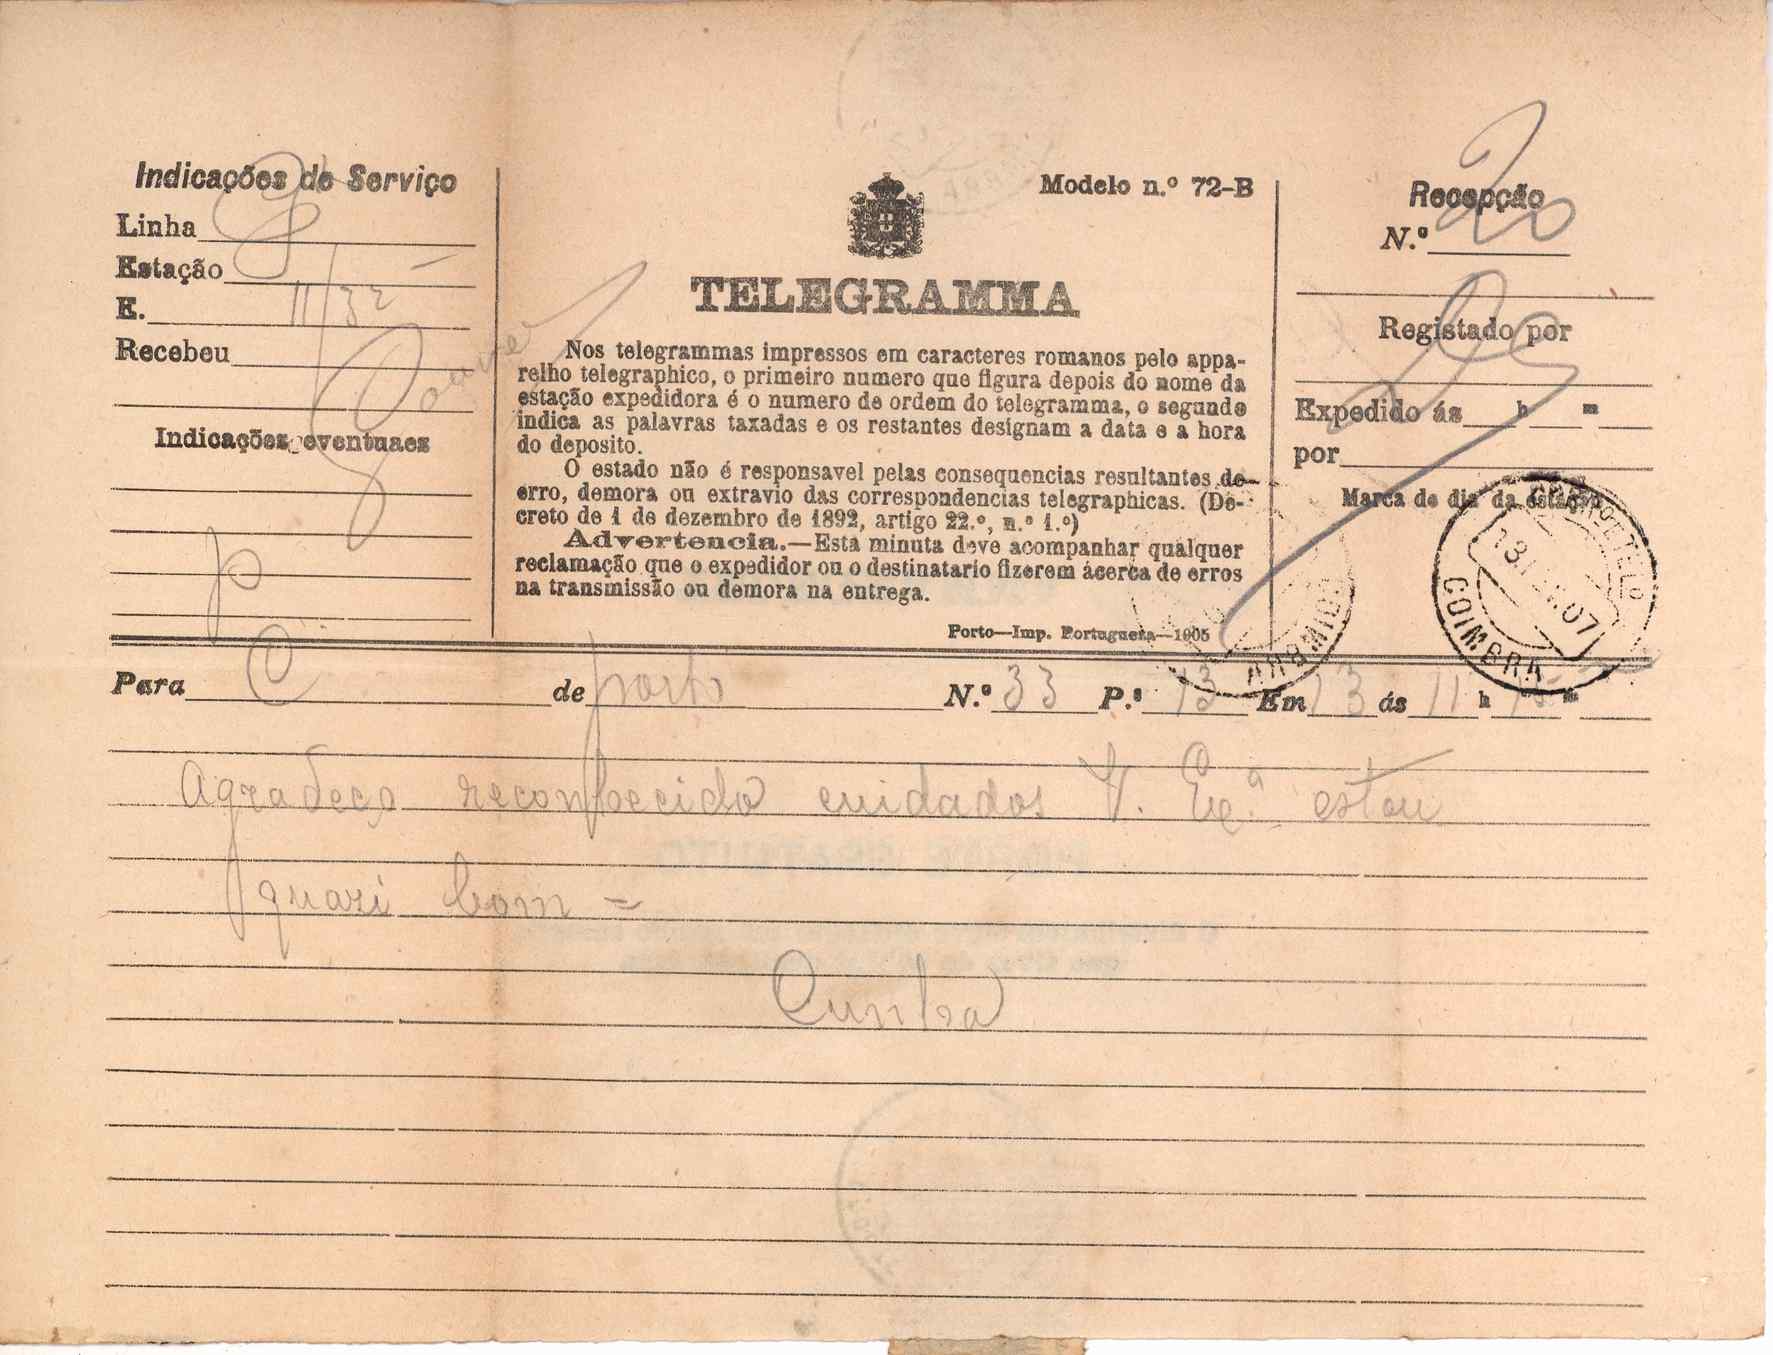 Indicações de Serviço
Linha
Estação
E. 11/32
Recebeu
Indicações eventuaes
Modelo n.º 72-B
TELEGRAMMA
Nos telegrammas impressos em caracteres romanos pelo appa-
relho telegraphico, o primeiro numero que figura depois do nome da
estação expedidora é o numero de ordem do telegramma, o segundo
indica as palavras taxadas e os restantes designam a data e a hora
do deposito.
O estado não é responsavel pelas consequencias resultantes de
erro, demora ou extravio das correspondencias telegraphicas. (De-
creto de 1 de dezembro de 1892, artigo 22.º, n.º 1.º)
Advertencia.—Esta minuta deve acompanhar qualquer
reclamação que o expedidor ou o destinatario fizerem ácerca de erros
na transmissão ou demora na entrega.
Porto—Imp. Portugueza—1905
Recepção
N.º 20
Registado por
Expedido ás h m
por
Marca de dia da estação
COIMBRA
COIMBRA
Para C de porto N.º 33 P.s 13 Em 13 ás 11 h 15 m
Agradeço reconhecido cuidados V. Exª estou
quasi bom =
Cunha